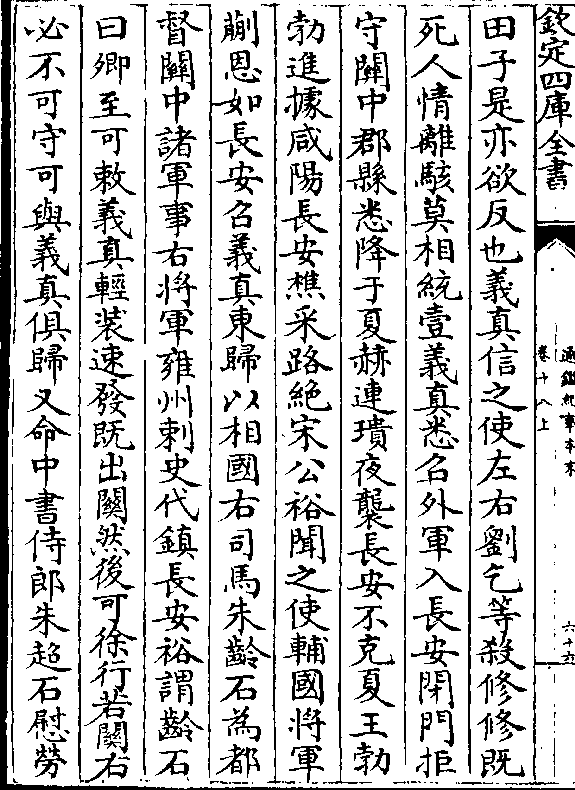 欽定四庫全書
通鑑紀事本末
卷十八上
六十六
田子是亦欲反也義真信之使左右劉乞等殺修修既
死人情離駭莫相統壹義真悉召外軍入長安閉門拒
守關中郡縣悉降于夏赫連璝夜襲長安不克夏王勃
勃進據咸陽長安樵采路絶宋公裕聞之使輔國將軍
蒯恩如長安召義真東歸以相國右司馬朱齡石為都
督關中諸軍事右將軍雍州刺史代鎮長安裕謂齡石
曰卿至可敕義真輕裝速發既出關然後可徐行若關右
必不可守可與義真俱歸又命中書侍郎朱超石慰勞